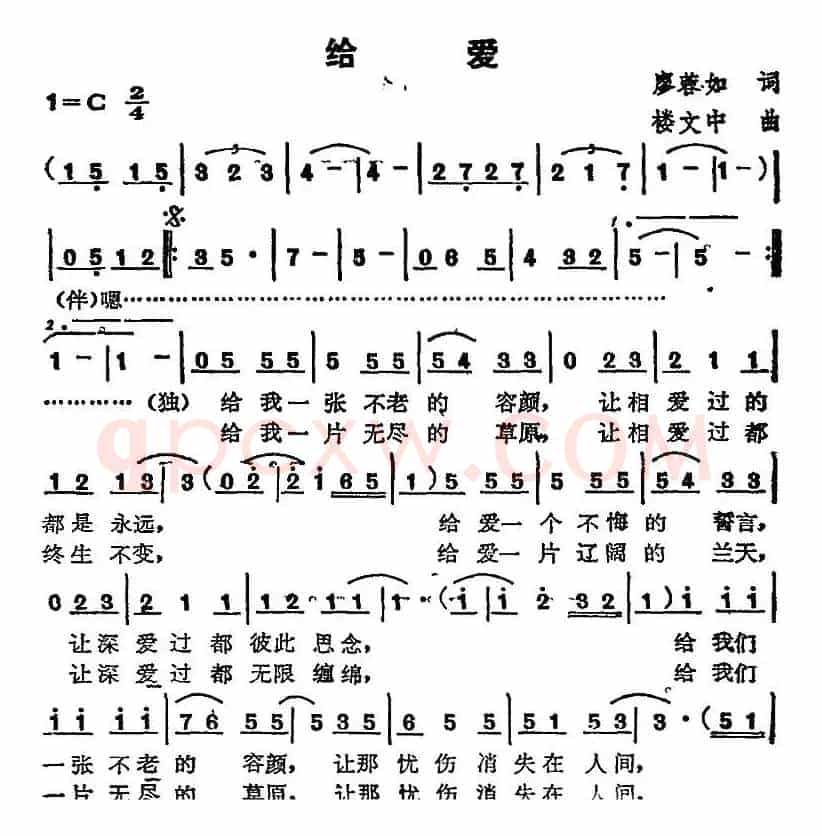 给 爱
廖蓉如 词
1=C 2/4
楼文中 曲
(1 5 1 5 | 3 2 3 | 4 - | 4 - | 2 7 2 7 | 2 1 7 | 1 - | 1 - )|
| 0 5 1 2 |: 3 5 · | 7 - | 5 - | 0 6 5 | 4 3 2 | 5 - | 5 - :|
(伴)嗯…………………………………………
1 - | 1 - | 0 5 5 5 | 5 5 5 | 5 4 3 3 | 0 2 3 | 2 1 1
…………(独) 给我一张不老的 容颜, 让相爱过的
给我一片无尽的 草原, 让相爱过都
1 2 1 3 | 3 (0 2 | 2 i 6 5 | 1 ) 5 5 5 | 5 5 5 | 5 4 3 3
都是永远, 给爱一个不悔的 誓言,
终生不变, 给爱一片辽阔的 兰天,
0 2 3 | 2 1 1 | 1 2 1 | 1 · (i | i 2 3 2 | 1 ) i i
让深爱过都彼此思念, 给我们
让深爱过都无限缠绵, 给我们
i i i i | 7 6 5 5 | 5 3 5 | 6 5 5 | 5 1 5 3 | 3 · (5 1 |
一张不老的 容颜, 让那忧伤消失在人间,
一片无尽的 草原, 让那忧伤消失在人间,
qpcxw.com